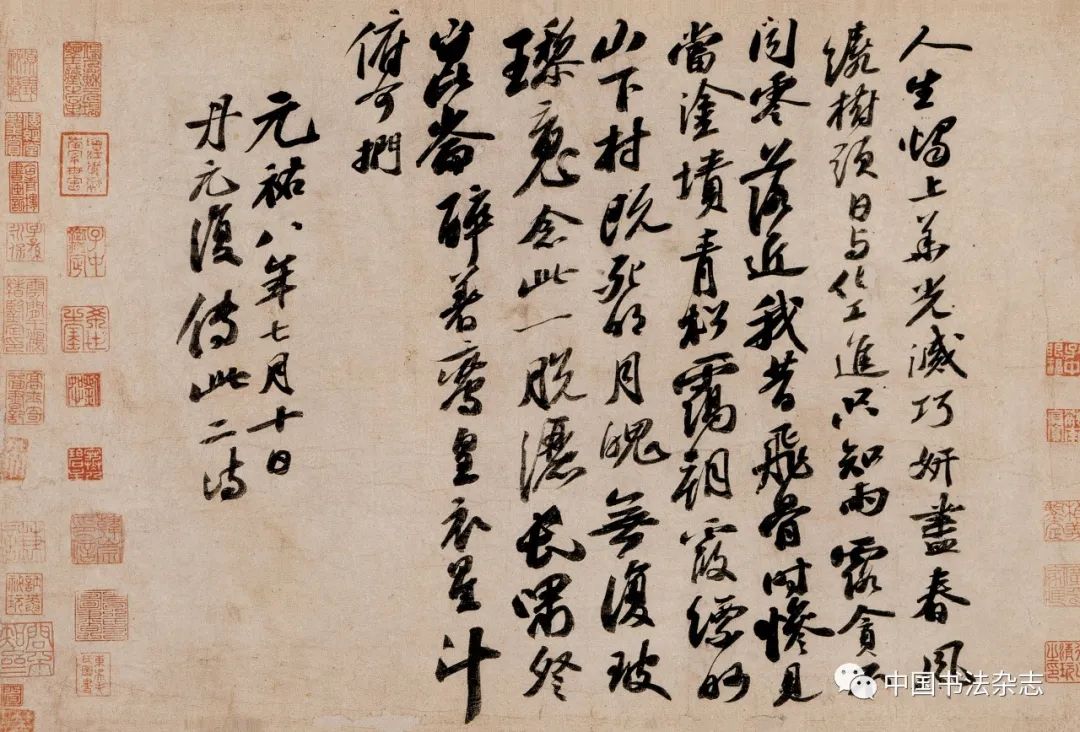 人生燭上華光滅巧妍盡春風
繞樹頭日与化工進只知雨露貪不
聞零落近我昔飛骨時慘見
當塗墳青松靄朝霞縹眇
山下村既死明月魄無復玻
瓈魂念此一脫灑長嘯登
崑崙醉著鸞皇衣星斗
俯可捫
元祐八年七月十日
丹元復傳此二詩
中国书法杂志